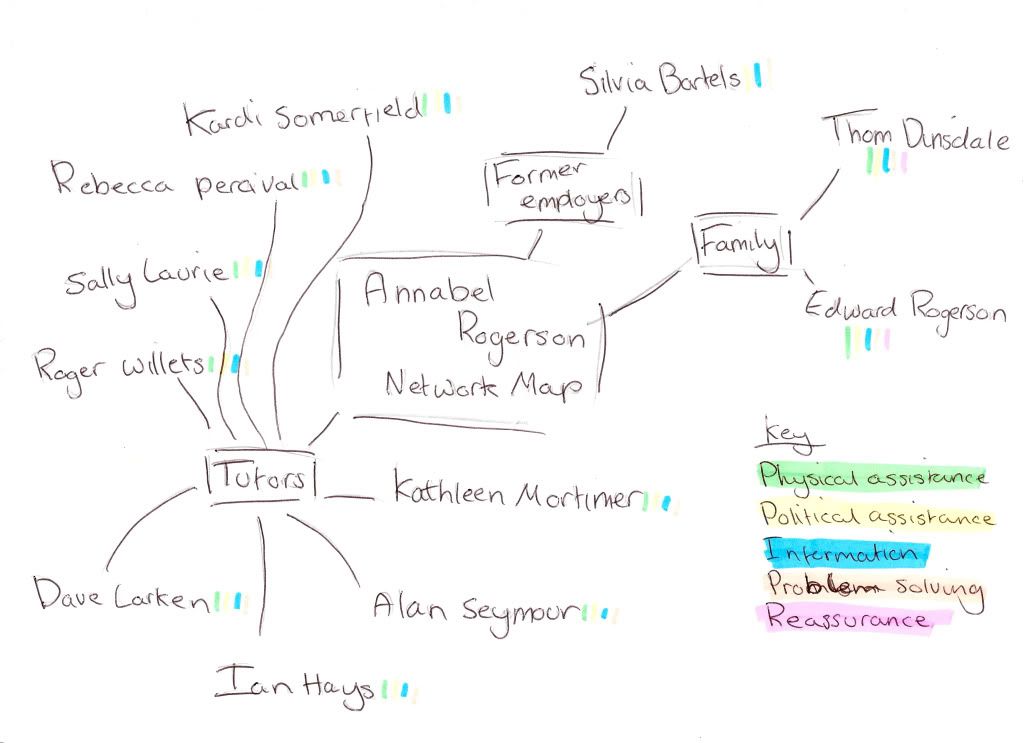 Silvia Bartels
Kardi Somerfield
Thom Dinsdale
Rebecca percival
Former
employers
Family
Sally Laurie
Annabel
Rogerson
Network Map
Edward Rogerson
Roger willets
Key
Tutors
Kathleen Mortimer
Physical assistance
Political assistance
Information
Problem solving
Reassurance
Dave Larken
Alan Seymour
Ian Hays